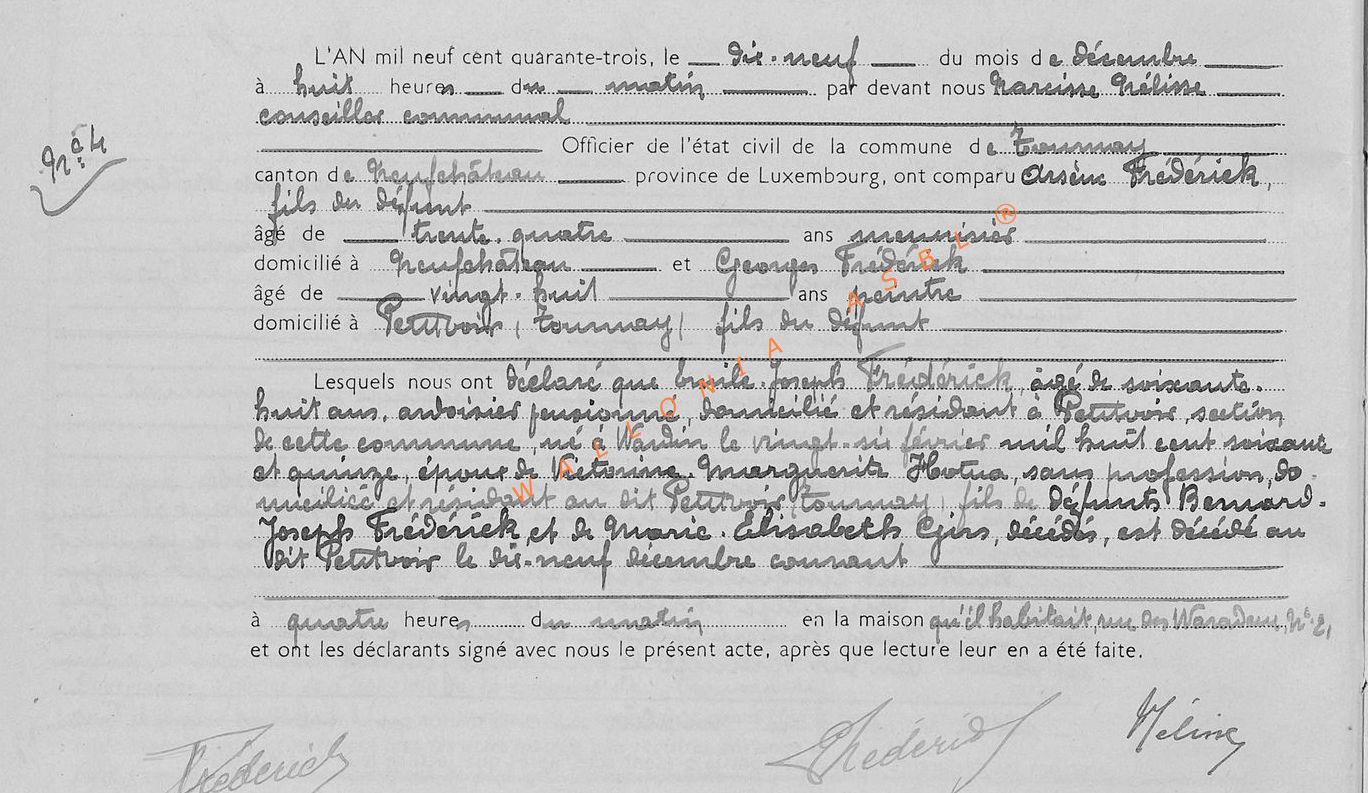 L'AN mil neuf cent quarante-trois, le dix-neuf du mois de décembre
à huit heures du matin par devant nous Narcisse
conseiller communal
Officier de l'état civil de la commune de Tournay
N° 4
canton de Neufchâteau province de Luxembourg, ont comparu Arsène Frédérick,
fils du défunt
âgé de trente-quatre ans menuisier
domicilié à Neufchâteau et Georges Frédérick
âgé de vingt-huit ans peintre
domicilié à Petitvoir (Tournay) fils du défunt
Lesquels nous ont déclaré que Emile-Joseph Frédérick, âgé de soixante-
huit ans, ardoisier pensionné, domicilié et résidant à Petitvoir, section
de cette commune, né à Wardin le vingt-six février mil huit cent soixante
et quinze, époux de Victorine Marguerite Hotua, sans profession, do-
miciliée et résidant au dit Petitvoir (Tournay), fils de défunts Bernard-
Joseph Frédérick et de Marie-Élisabeth, décédés, est décédé au
dit Petitvoir le dix-neuf décembre courant
à quatre heures du matin en la maison qu'il habitait, rue des N° 2,
et ont les déclarants signé avec nous le présent acte, après que lecture leur en a été faite.
Frédérick Frédérick
WALLONIA ASBL ®